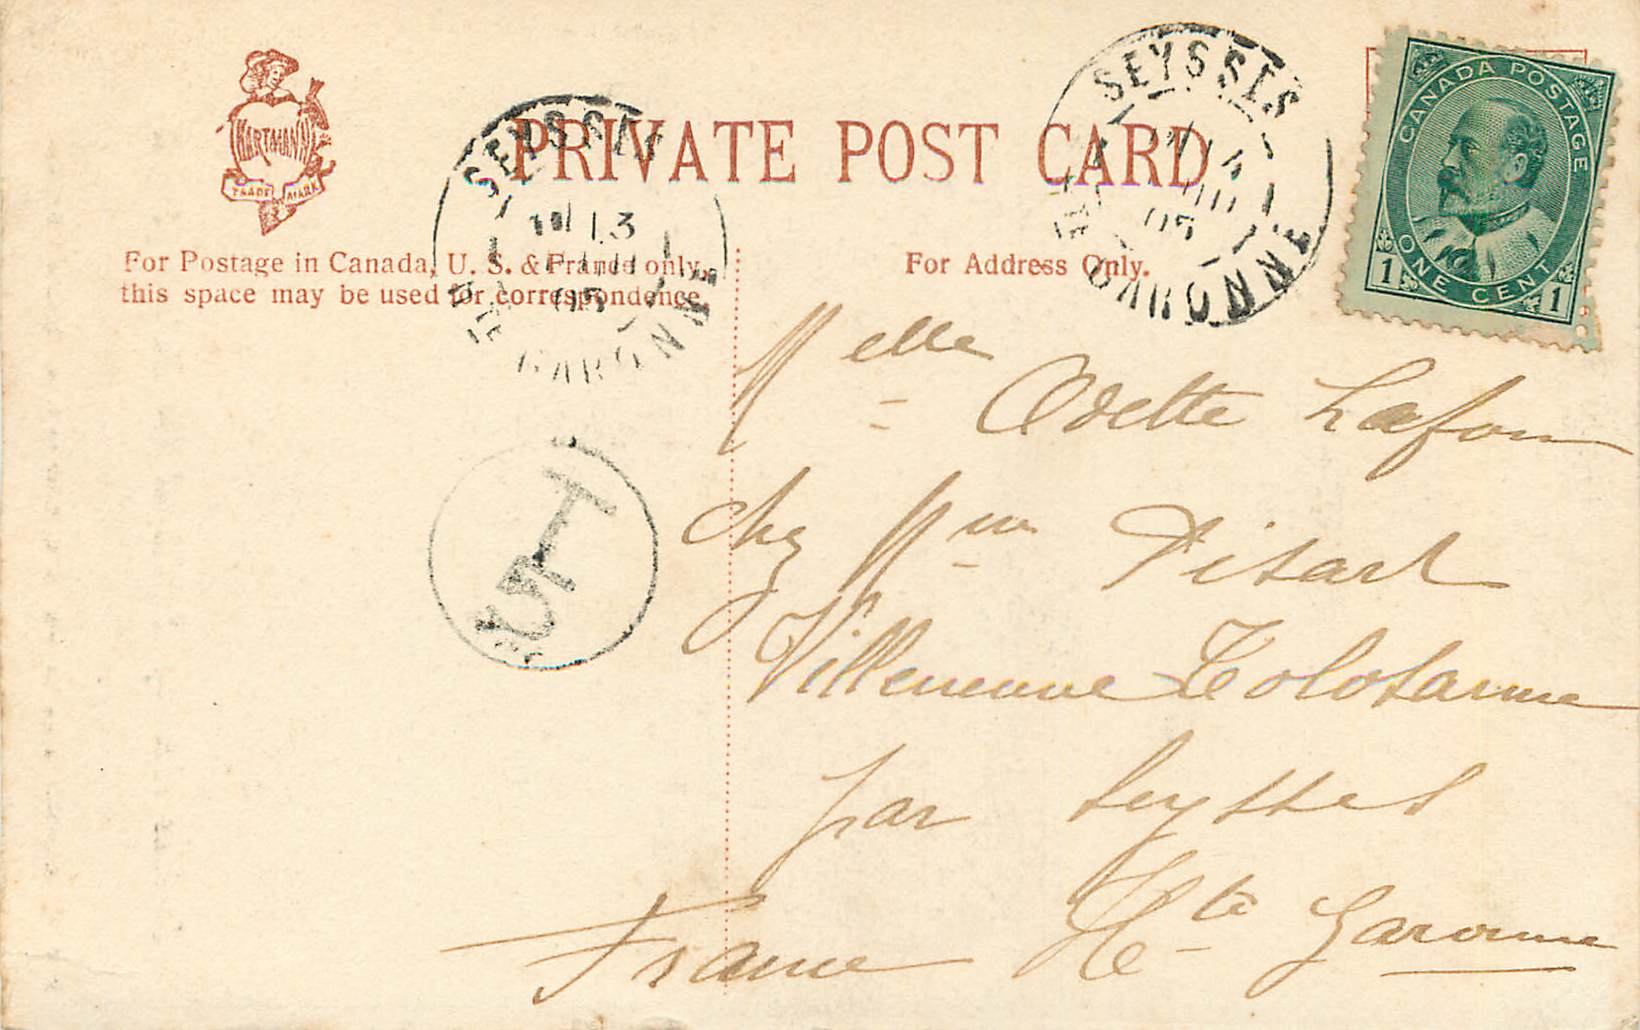 HARTMANN
TRADE MARK
PRIVATE POST CARD
For Postage in Canada, U. S. & France only,
this space may be used for correspondence.
For Address Only.
SEYSSES
13
05
HTE GARONNE
SEYSSES
05
HTE GARONNE
CANADA POSTAGE
ONE CENT
1 1
T
5
Melle Odette Lafon
chez Mme Disart
Villeneuve Tolosanne
par Seysses
Hte Garonne
France